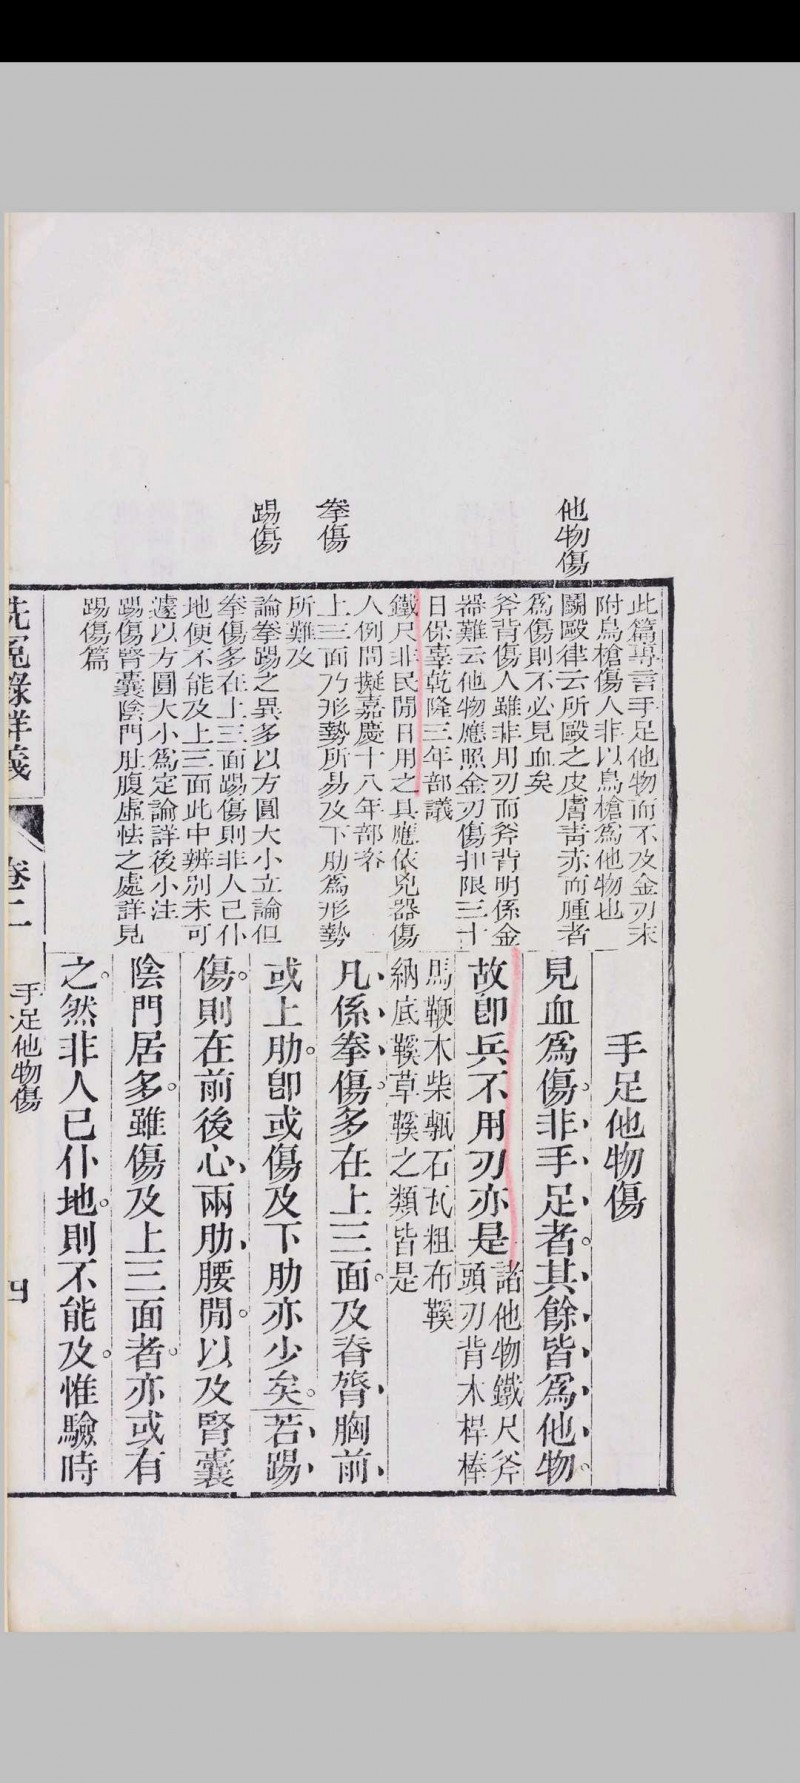 他物傷
拳傷
踢傷
此篇專言手足他物而不及金刃末
附鳥槍傷人非以鳥槍為他物也
鬭毆律云所毆之皮膚青赤而腫者
為傷則不必見血矣
斧背傷人雖非用刃而斧背明係金
器難云他物應照金刃傷扣限三十
日保辜乾隆三年部議
鐵尺非民間日用之具應依兇器傷
人例問擬嘉慶十八年部咨
上三面乃形勢所易及下肋為形勢
所難及
論拳踢之異多以方圓大小立論但
拳傷多在上三面踢傷則非人已仆
地便不能及上三面此中辨別未可
遽以方圓大小為定論詳後小注
踢傷腎囊陰門肚腹虛怯之處詳見
踢傷篇
手足他物傷
見血為傷非手足者其餘皆為他物
故卽兵不用刃亦是
諸他物鐵尺斧
頭刃背木桿棒
馬鞭木柴甎石瓦粗布鞵
納底鞵草鞵之類皆是
凡係拳傷多在上三面及脊膂胸前
或上肋卽或傷及下肋亦少矣若踢
傷則在前後心兩肋腰閒以及腎囊
陰門居多雖傷及上三面者亦或有
之然非人已仆地則不能及惟驗時
洗冤錄詳義
卷二
手足他物傷
四